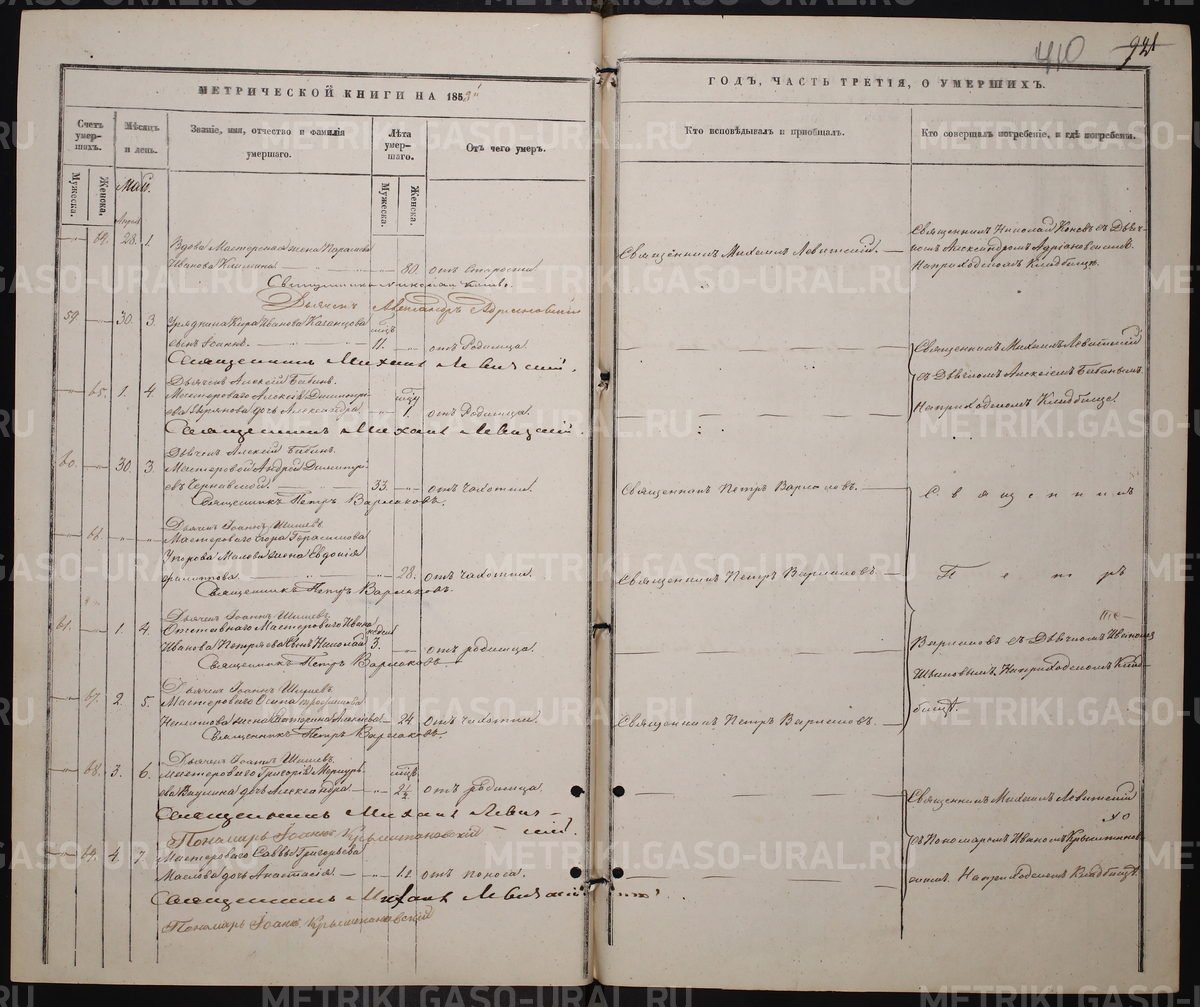 410 921
МЕТРИЧЕСКОЙ КНИГИ НА 1858й
ГОДЪ, ЧАСТЬ ТРЕТІЯ, О УМЕРШИХЪ.
Счетъ умер- шихъ.
Мѣсяцъ и день.
Званіе, имя, отчество и фамилія умершаго.
Лѣта умер- шаго.
Отъ чего умеръ.
Кто исповѣдывалъ и пріобщалъ.
Кто совершалъ погребеніе, и гдѣ погребены.
Мужеска. Женска.
Май.
Мужеска. Женска.
Апрѣля
64. 28. 1. Вдова Мастерская жена
Иванова 80. отъ Старости
Священникъ Николай
Дьячекъ Александръ Адріановскій
Священникъ Михаилъ Левитскій.
Священникъ Николай съ Дьяч-
комъ Александромъ Адріановскимъ
На приходскомъ Кладбищѣ.
59. 30. 3. Урядника Кира Иванова Казанцова
сынъ Іоаннъ. 11. отъ Родимца
Священникъ Михаилъ Левитскій.
Дьячекъ Алексѣй Бабинъ.
Священникъ Михаилъ Левитскій
съ Дьячкомъ Алексѣемъ Бабинымъ
На приходскомъ Кладбищѣ.
65. 1. 4. Мастероваго Алексѣя Димитрі-
ева дочь Александра 1. отъ Родимца.
Священникъ Михаилъ Левитскій.
Дьячекъ Алексѣй Бабинъ.
60. 30. 3. Мастеровой Андрей Димитрі-
евъ Чернавскій. 33. отъ Чахотки.
Священникъ Петръ Варлаковъ.
Дьячекъ Іоаннъ Шишевъ
Священникъ Петръ Варлаковъ.
Священникъ
66. Мастероваго Егора Герасимова
жена Евдокія
Филиппова. 28. отъ Чахотки.
Священникъ Петръ Варлаковъ.
Дьячекъ Іоаннъ Шишевъ
Священникъ Петръ Варлаковъ.
Петръ
61. 1. 4. Отставнаго Мастероваго Ивана недѣли
Иванова сынъ Николай 3. отъ родимца.
Священникъ Петръ Варлаковъ
Дьячекъ Іоаннъ Шишевъ
Варлаковъ съ Дьячкомъ Иваномъ
На приходскомъ Клад-
бищѣ.
67. 2. 5. Мастероваго Осипа Трофимова
жена Катерина Алексѣева 24 отъ Чахотки.
Священникъ Петръ Варлаковъ.
Дьячекъ Іоаннъ Шишевъ.
Священникъ Петръ Варлаковъ.
68. 3. 6. Мастероваго Григорія Меркурь-
ева дочь Александра 2½ отъ родимца.
Священникъ Михаилъ Левит-
скій.
Пономарь Іоаннъ Крыштановскій
Священникъ Михаилъ Левитскій
съ Пономаремъ Иваномъ Крыштанов-
скимъ. На приходскомъ Кладбищѣ.
69. 4. 7. Мастероваго Саввы Григорьева
Маслова дочь Анастасія. отъ поноса.
Священникъ Михаилъ Левитскій
Пономарь Іоаннъ Крыштановскій
METRIKI.GASO-URAL.RU